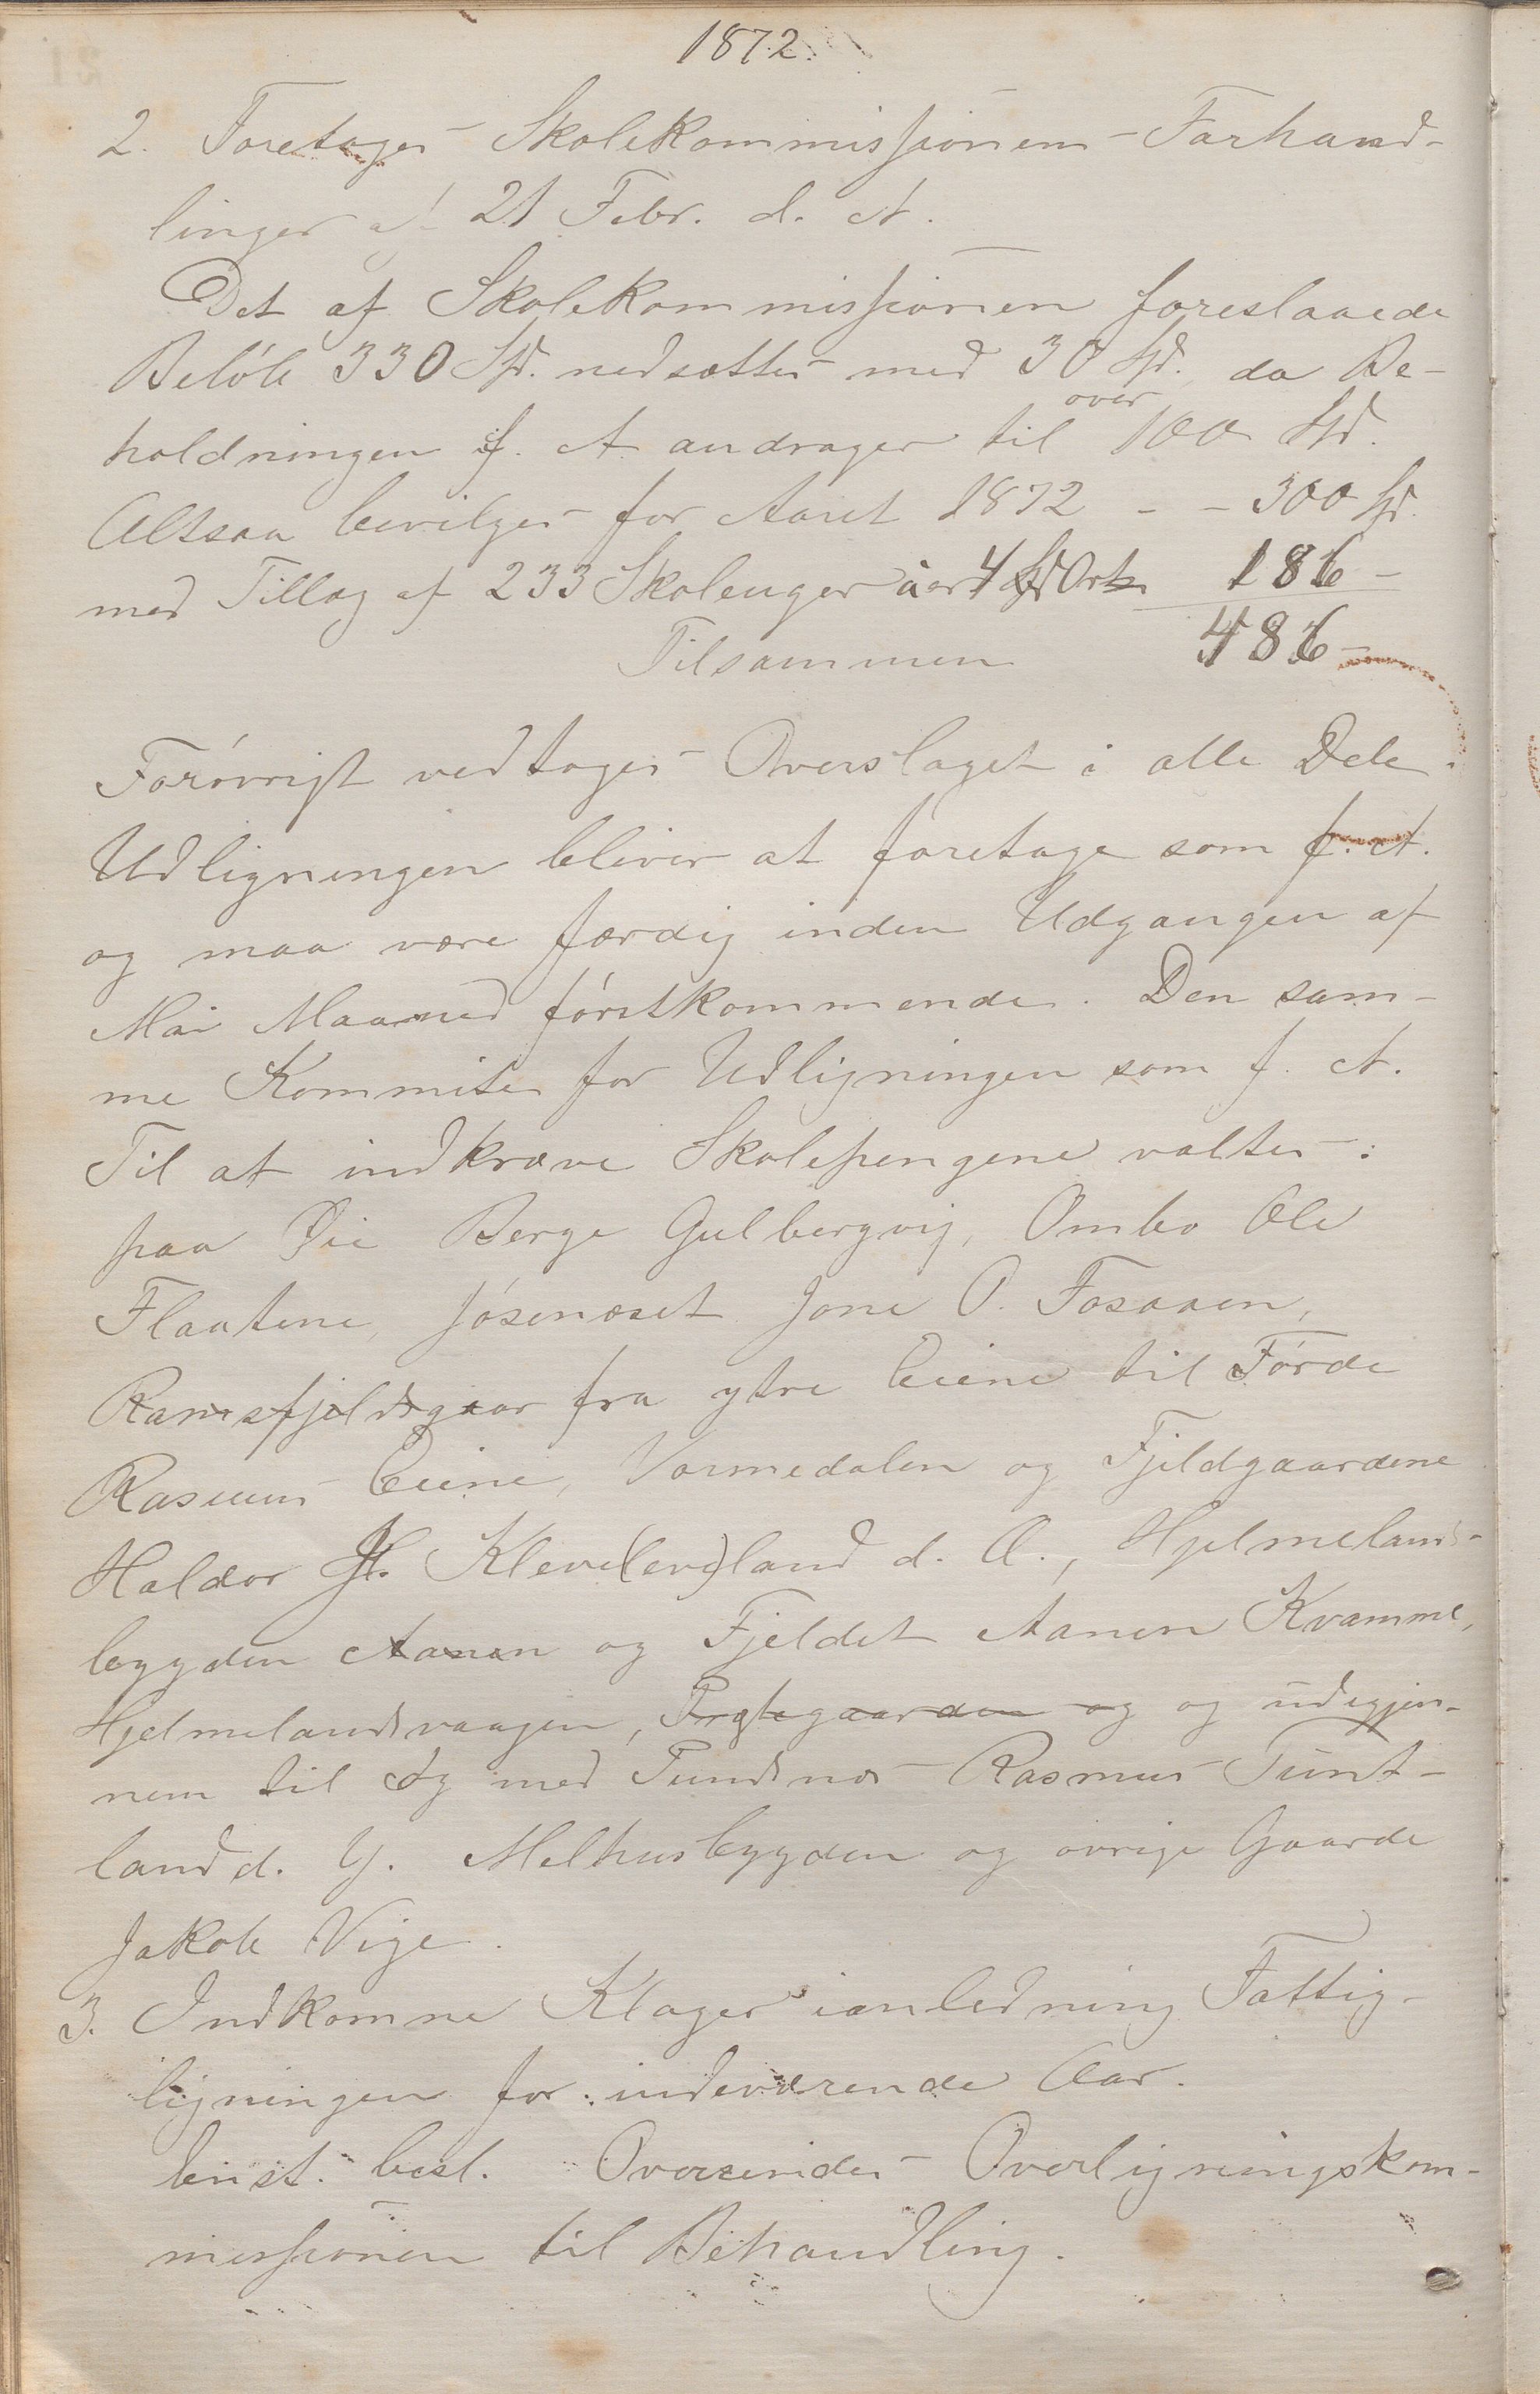 1872.
2. Foretoges Skolekommissionens Forhand-
linger af 21 Febr. d. A.
Det af Skolekommissionen foreslaaede
Beløb 330 Spd. nedsættes med 30 Spd. da Be-
holdningen f. A. andrager til over 100 Spd.
Altsaa bevilges for Aaret 1872 - - 300 Spd.
med Tillæg af 233 Skoleuger à 4 Ort 186 -
Tilsammen 486 -
Forøvrigt vedtages Overslaget i alle Dele.
Udligningen bliver at foretage som f. A.
og maa være færdig inden Udgangen af
Mai Maaned førstkommende. Den sam-
me Kommite for Udligningen som f. A.
Til at indkræve Skolepengene valtes:
paa Øie Berge Gulbergvig, Ombo Ole
Flaatene, Jøsenæset Jone O. Fosaaen,
Ramsfjeldsgaar fra ytre Eiene til Førde
Rasmus Eiene, Vormedalen og Fjeldgaardene
Haldor H. Kleve(leve)land d. Æ., Hjelmelands-
bygden og Fjeldet Aanen Kvamme,
Hjelmelandsvaagen, Præstegaarden og og udigjen-
nem til og med Pundsnes Rasmus Tunt-
land d. Y. Melhusbygden og øvrige Gaarde
Jakob Vige.
3. Indkomne Klager ianledning Fattig-
ligningen for indeværende Aar.
Enst. besl. Oversendes Overligningskom-
missionen til Behandling.